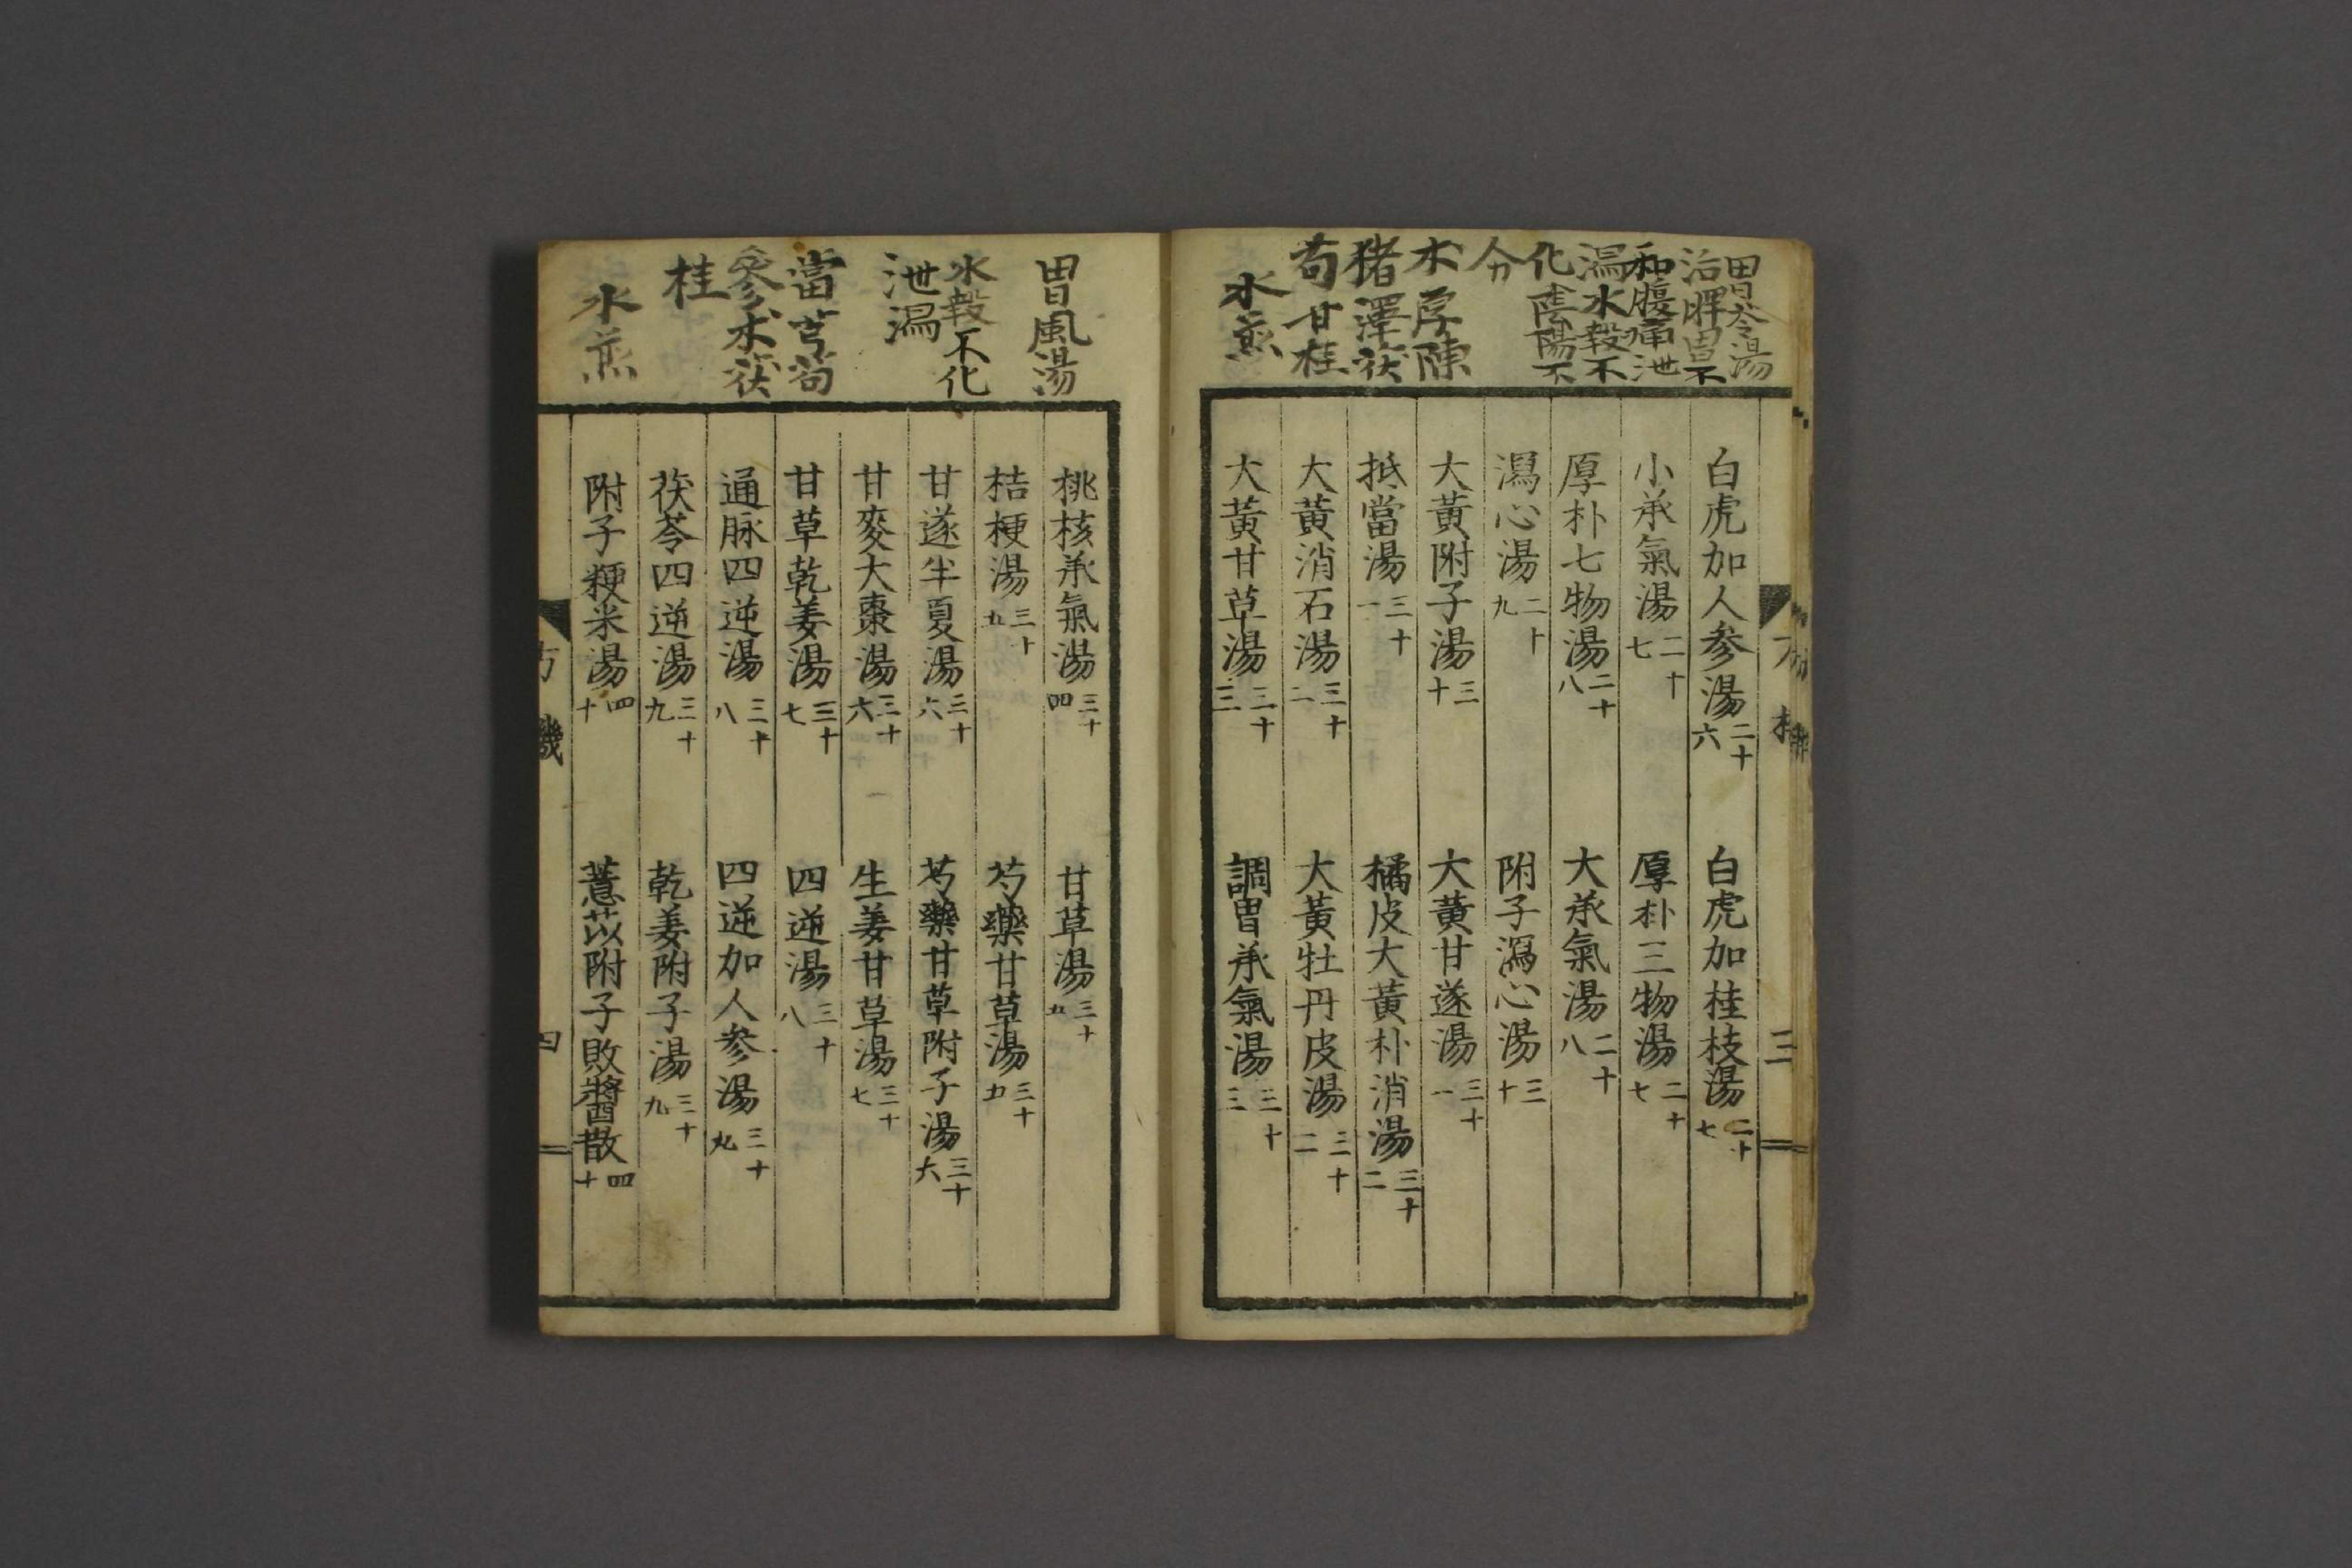 胃苓湯
治脾胃不
和腹痛泄
瀉水穀不
化陰陽不
分
朮厚陳
猪澤茯
芍甘桂
水煎
三
白虎加人參湯二十六
白虎加桂枝湯二十七
小承氣湯二十七
厚朴三物湯二十七
厚朴七物湯二十八
大承氣湯二十八
瀉心湯二十九
附子瀉心湯三十
大黃附子湯三十
大黃甘遂湯三十一
抵當湯三十一
橘皮大黃朴消湯三十二
大黃消石湯三十二
大黃牡丹皮湯三十二
大黃甘草湯三十三
調胃承氣湯三十三
胃風湯
水穀不化
泄瀉
當芎芍
參朮茯
桂
水煎
桃核承氣湯三十四
甘草湯三十五
桔梗湯三十五
芍藥甘草湯三十五
甘遂半夏湯三十六
芍藥甘草附子湯三十六
甘麥大棗湯三十六
生姜甘草湯三十七
甘草乾姜湯三十七
四逆湯三十八
通脉四逆湯三十八
四逆加人參湯三十九
茯苓四逆湯三十九
乾姜附子湯三十九
附子粳米湯四十
薏苡附子敗醬散四十
方機
四